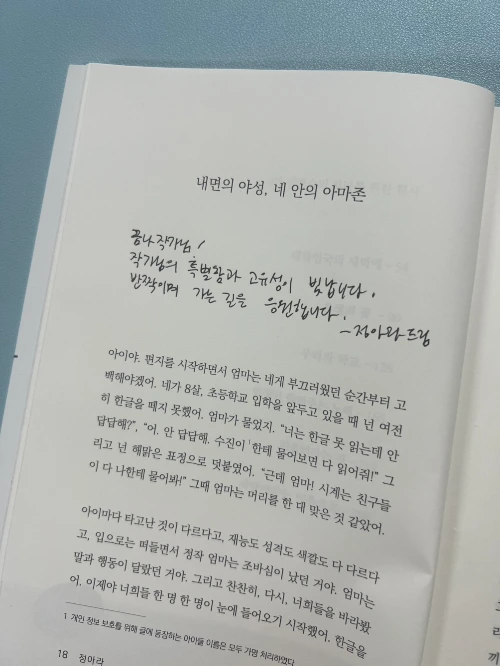 내면의 야성, 네 안의 아마존
꿈나작가님!
작가님의 특별함과 고유성이 빛납니다.
반짝이며 가는 길을 응원합니다.
- 정아라 드림
아이야. 편지를 시작하면서 엄마는 네게 부끄러웠던 순간부터 고
백해야겠어. 네가 8살, 초등학교 입학을 앞두고 있을 때 넌 여전
히 한글을 떼지 못했어. 엄마가 물었지. “너는 한글 못 읽는데 안
답답해?”, “어. 안 답답해. 수진이¹한테 물어보면 다 읽어줘!” 그
리고 넌 해맑은 표정으로 덧붙였어. “근데 엄마! 시계는 친구들
이 다 나한테 물어봐!” 그때 엄마는 머리를 한 대 맞은 것 같았어.
아이마다 타고난 것이 다르다고, 재능도 성격도 색깔도 다 다르다
고, 입으로는 떠들면서 정작 엄마는 조바심이 났던 거야. 엄마는
말과 행동이 달랐던 거야. 그리고 찬찬히, 다시, 너희들을 바라봤
어. 이제야 너희들 한 명 한 명이 눈에 들어오기 시작했어. 한글을
1 개인 정보 보호를 위해 글에 등장하는 아이들 이름은 모두 가명 처리하였다
18 정아라